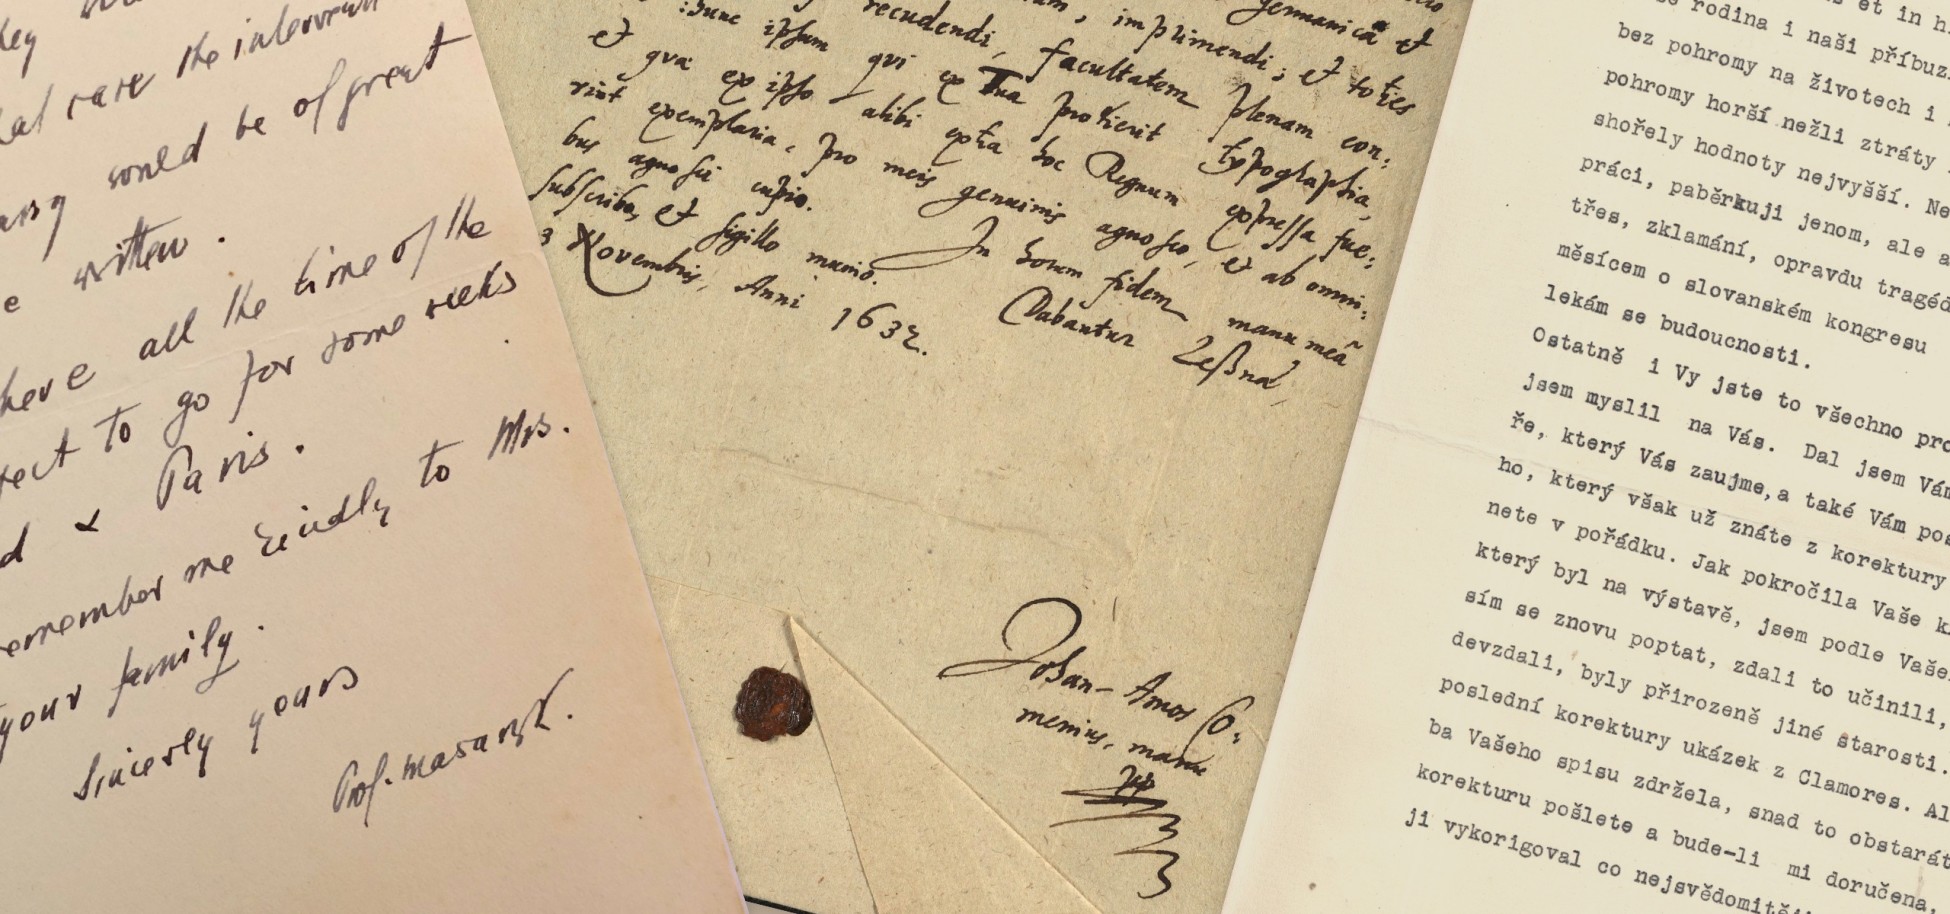 rare the interview
would be of great
e written.
have all the time of the
to go for some weeks
d & Paris.
remember me kindly to Mrs.
your family.
Sincerly yours
Prof. Masaryk.
germanicâ et
recudendi, imprimendi; et toties
et ipsum qui facultatem plenam con:
qua ex ipso ex Tua prodierit typographia,
rint alibi extra hoc Regnum expressa fue:
exemplaria, pro meis genuinis agnosco, et ab omni:
bus agnosci cupio. In horum fidem manu meâ
subscribo, et sigillo munio. Dabantur Leßnæ,
3 Novembris, Anni 1632.
Johan-Amos Co:
menius, manu
pp
et in h
rodina i naši příbuz
bez pohromy na životech i
pohromy horší nežli ztráty
shořely hodnoty nejvyšší. Ne
práci, paběrkuji jenom, ale a
třes, zklamání, opravdu tragéd
měsícem o slovanském kongresu
lekám se budoucnosti.
Ostatně i Vy jste to všechno pro
jsem myslil na Vás. Dal jsem Vám
ře, který Vás zaujme,a také Vám pos
ho, který však už znáte z korektury
nete v pořádku. Jak pokročila Vaše k
který byl na výstavě, jsem podle Vaše
sím se znovu poptat, zdali to učinili,
devzdali, byly přirozeně jiné starosti.
poslední korektury ukázek z Clamores. Al
ba Vašeho spisu zdržela, snad to obstarát
korekturu pošlete a bude-li mi doručena,
ji vykorigoval co nejsvědomitěji